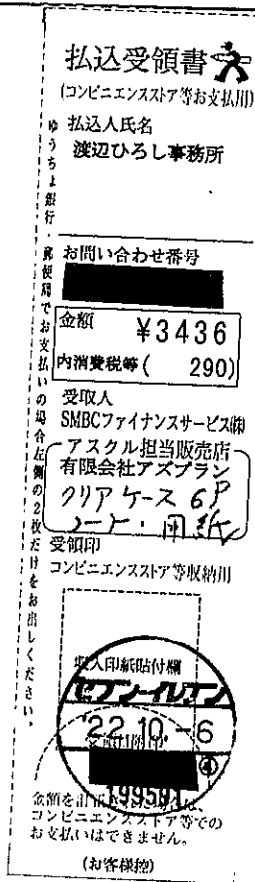 払込受領書
(コンビニエンスストア等お支払用)
払込人氏名
渡辺ひろし事務所
お問い合わせ番号
金額 ¥3436
内消費税等( 290)
受取人
SMBCファイナンスサービス㈱
アスクル担当販売店
有限会社アズプラン
クリアケース 6P
ノート・用紙
受領印
コンビニエンスストア等収納用
収入印紙貼付欄
セブン-イレブン
'22.10.-6
④
199591
コンビニエンスストア等での
お支払いはできません。
(お客様控)
ゆうちょ銀行・郵便局でお支払いの場合左側の2枚だけをお出しください。